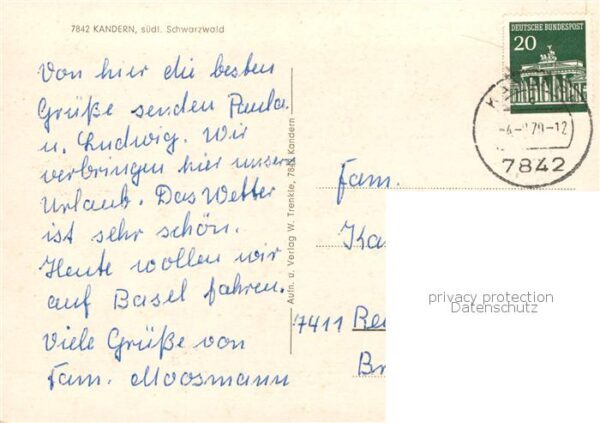 7842 KANDERN, südl. Schwarzwald
Von hier die besten
Grüße senden Paula
u. Ludwig. Wir
verbringen hier unsern
Urlaub. Das Wetter
ist sehr schön.
Heute wollen wir
auf Basel fahren.
Viele Grüße von
Fam. Moosmann
Aufn. u. Verlag W. Trenkle, 7842 Kandern
DEUTSCHE BUNDESPOST
20
7842
Fam.
Ka
7411 Re
B
privacy protection
Datenschutz